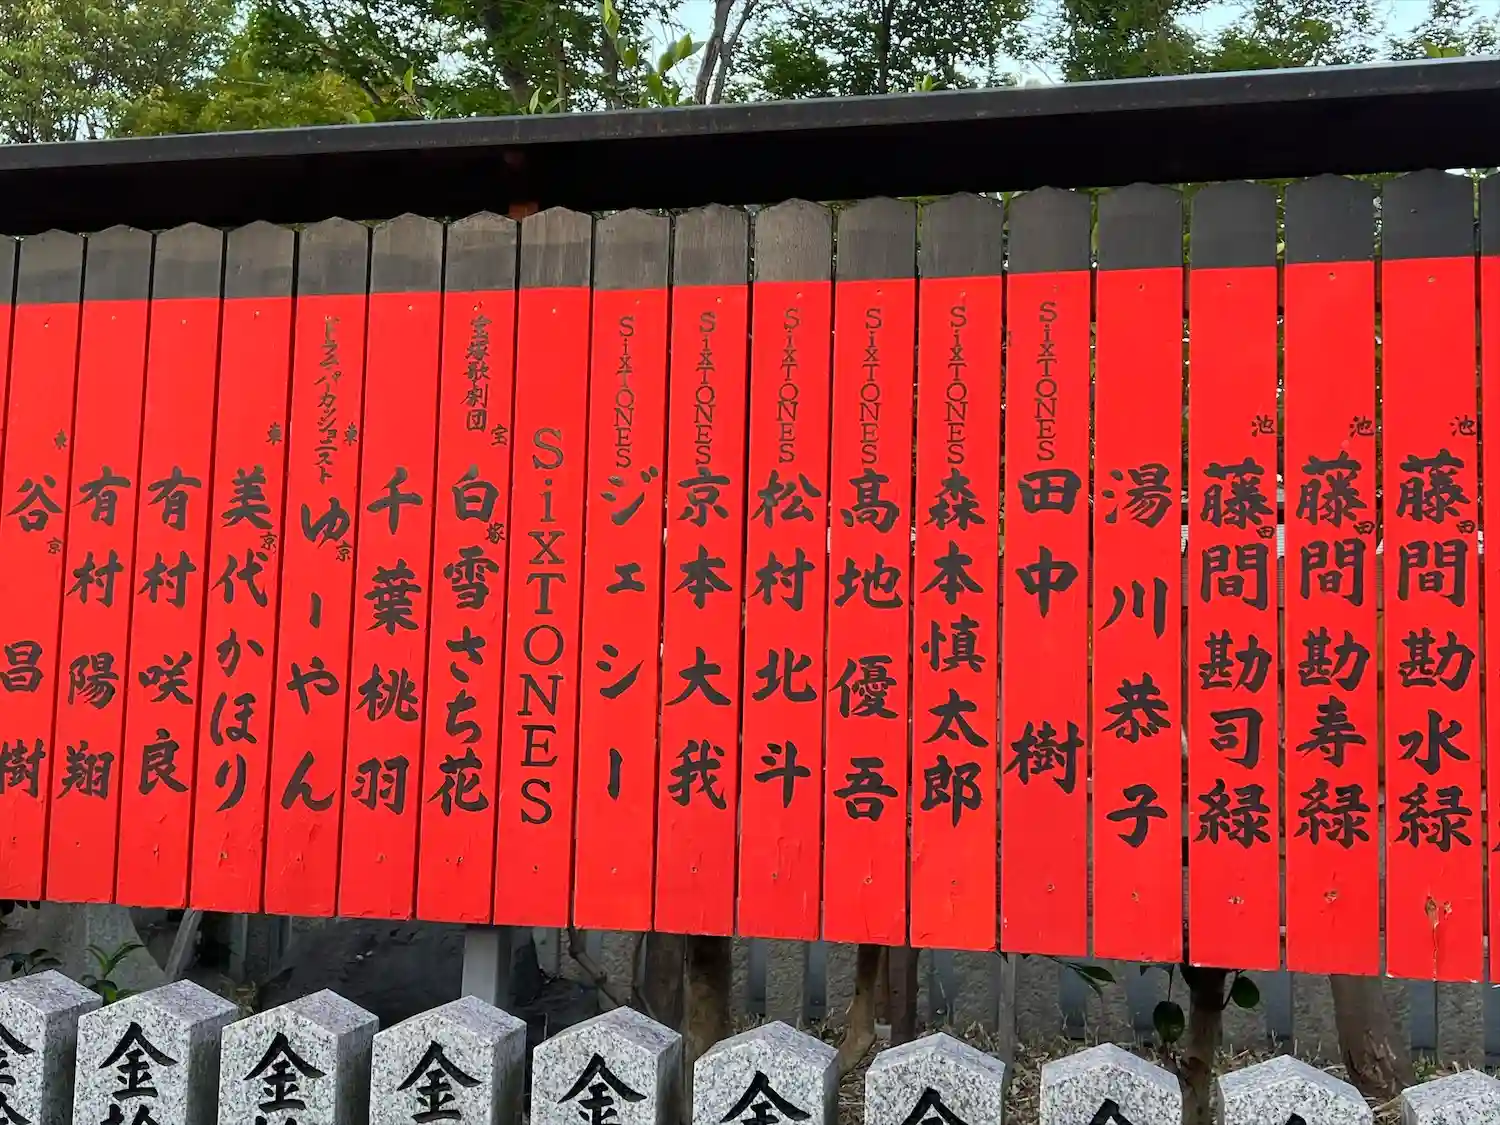 池田
藤間勘水緑
池田
藤間勘寿緑
池田
藤間勘司緑
湯川恭子
SixTONES
田中樹
SixTONES
森本慎太郎
SixTONES
髙地優吾
SixTONES
松村北斗
SixTONES
京本大我
SixTONES
ジェシー
SixTONES
宝塚歌劇団
宝塚
白雪さち花
千葉桃羽
ドラム・パーカッショニスト
東京
ゆーやん
東京
美代かほり
有村咲良
有村陽翔
東京
谷昌樹
金
金
金
金
金
金
金
金